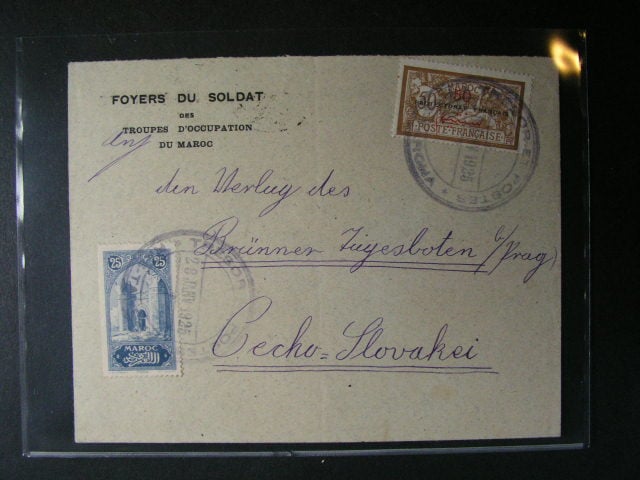 FOYERS DU SOLDAT
DES
TROUPES D'OCCUPATION
DU MAROC
an
den Verlag des
Brünner Tagesboten b/Prag
Cecho-Slovakei
MAROC
50
PROTECTORAT FRANÇAIS
POSTE FRANÇAISE
25 25
MAROC
POSTES
1926
TRESOR
1926